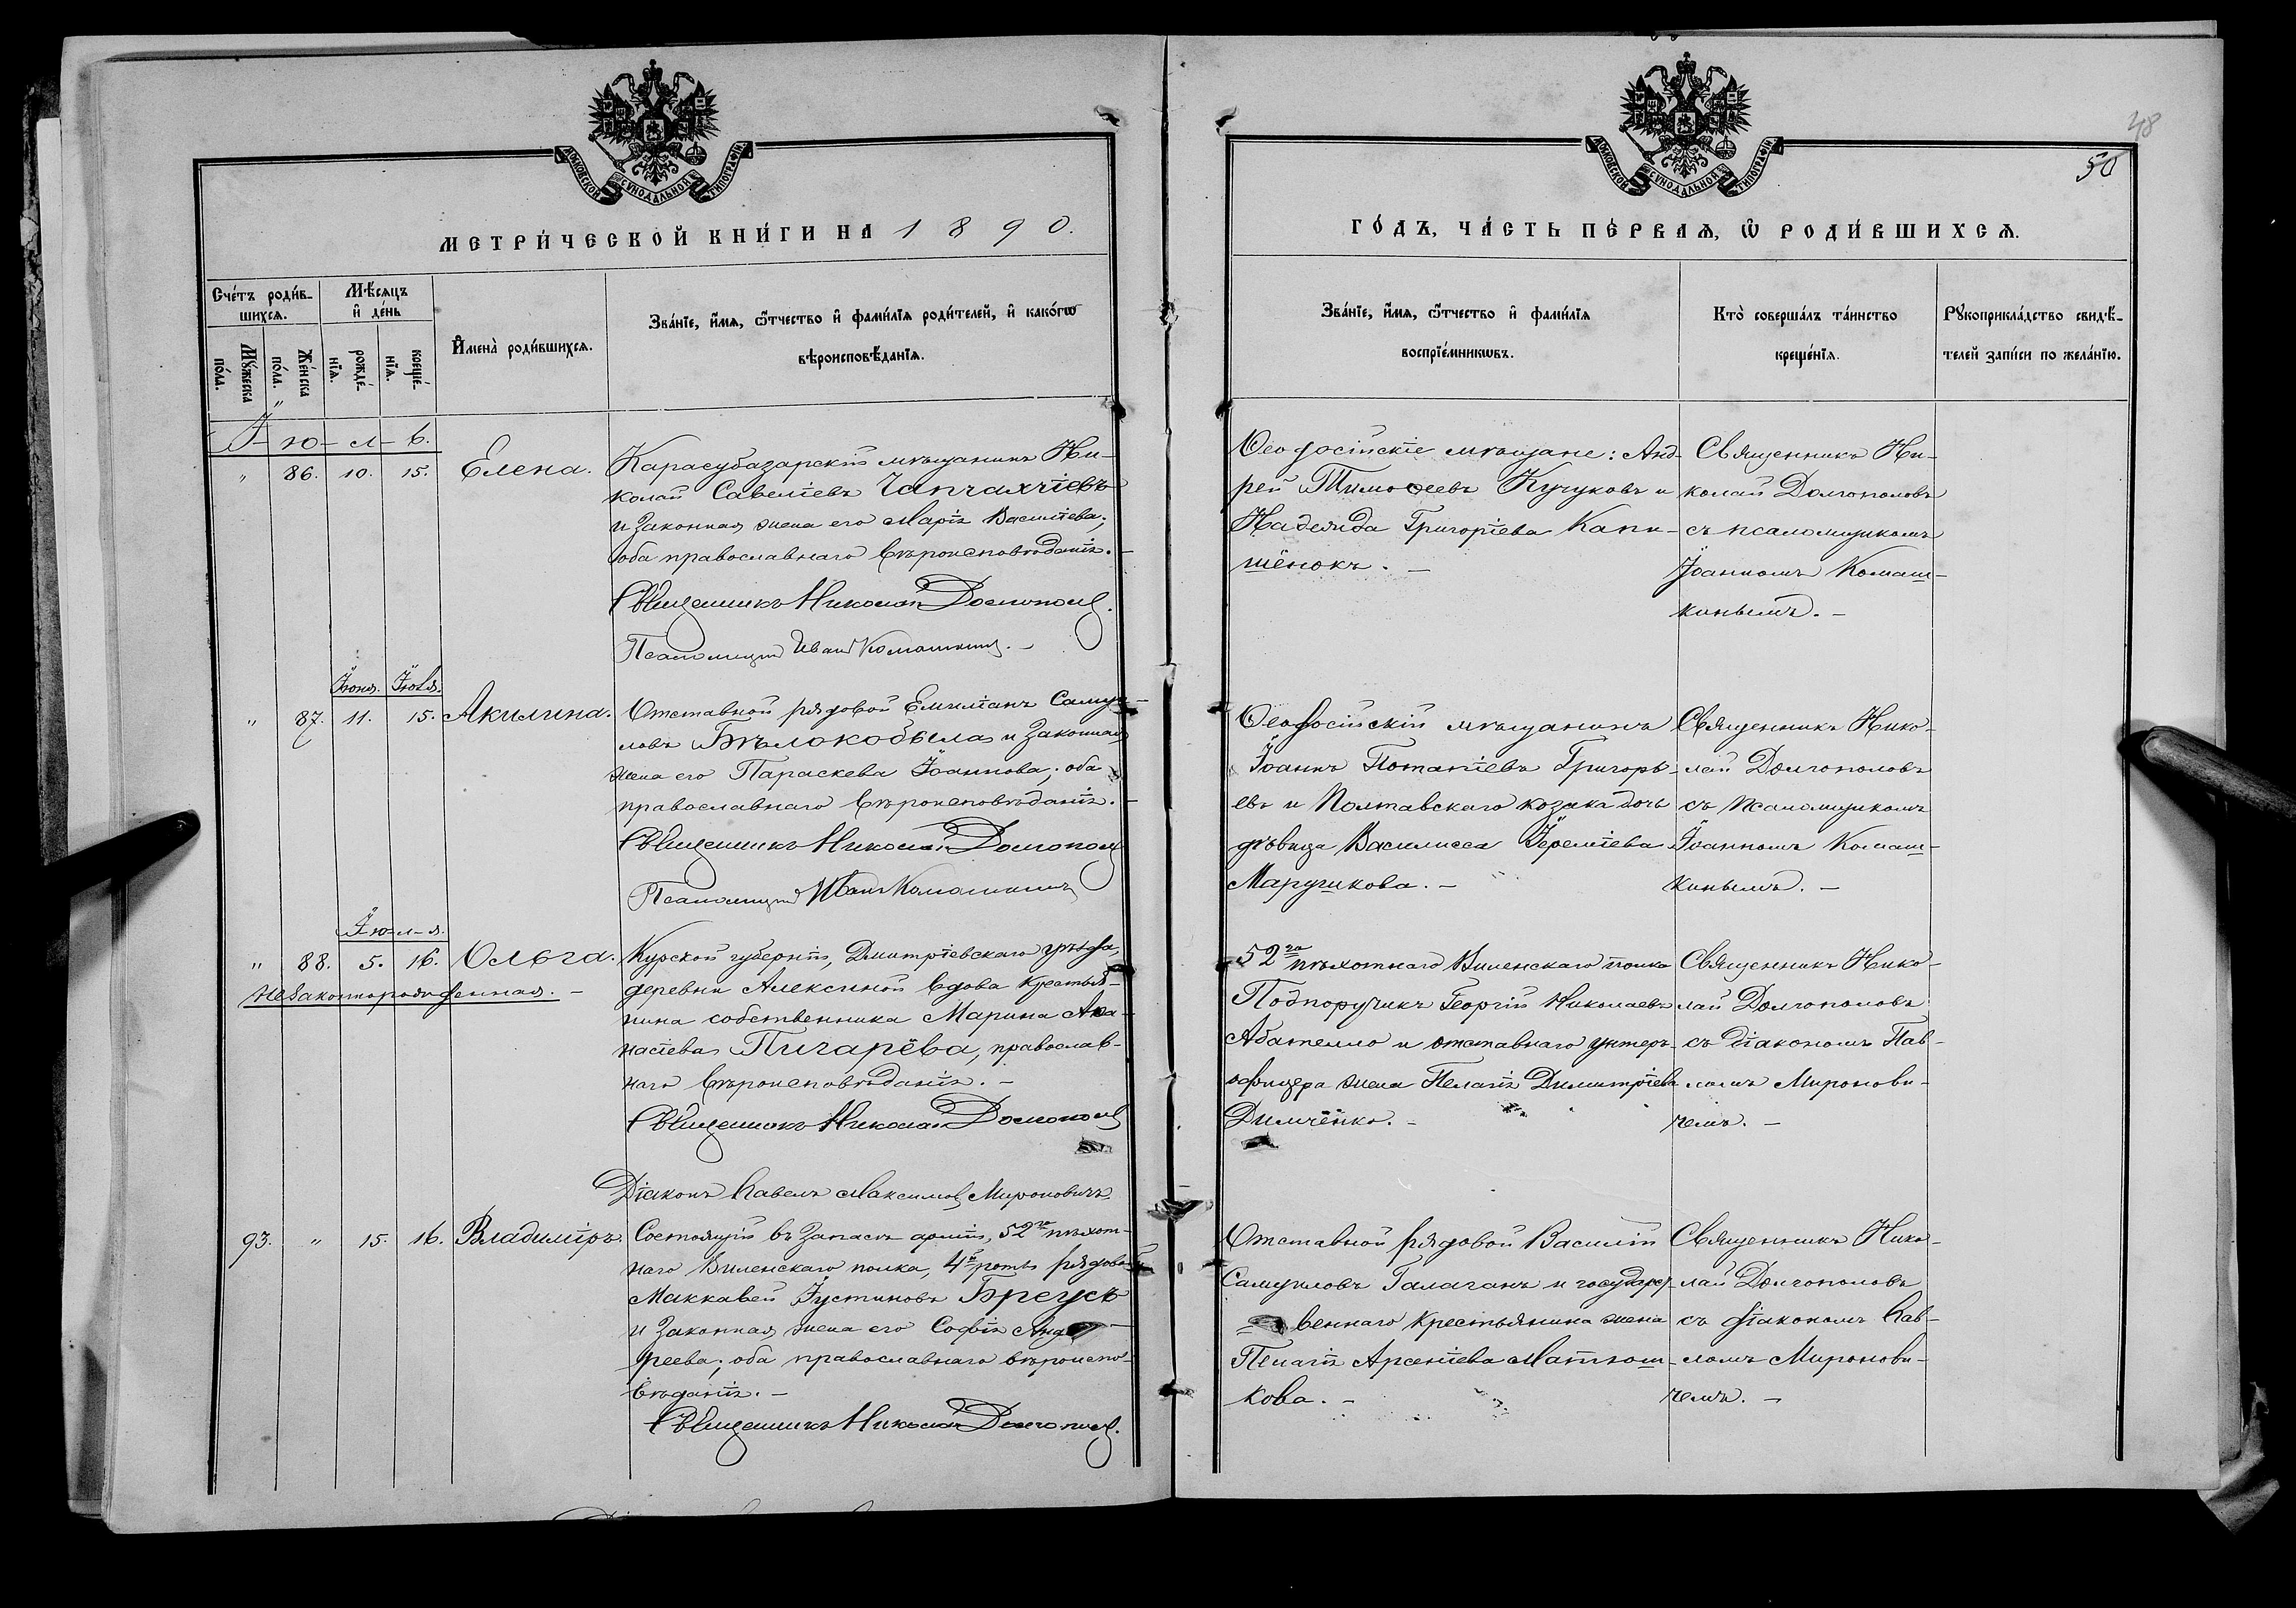 МОСКОВСКОЙ СѴНОДАЛЬНОЙ ТИПОГРАФІИ
МЕТРИ́ЧЕСКОЙ КНИ́ГИ НА 1890.
Сче́тъ роди́в-
шихсѧ.
Мꙋ́жеска
по́ла.
Же́нска
по́ла.
Мѣ́сѧцъ
и҆ де́нь
рожде́-
нїѧ.
креще́-
нїѧ.
И҆мена̀ роди́вшихсѧ.
Зва́нїе, и҆́мѧ, ѻ҆́тчество и҆ фами́лїѧ роди́телей, и҆ како́гѡ
вѣроисповѣ́данїѧ.
І-ю-л-ь.
" 86. 10. 15. Елена.
Карасубазарскій мѣщанинъ Ни-
колай Савеліевъ Чапчахчіевъ
и законная жена его Марія Васильева;
оба православнаго вѣроисповѣданія.
Священникъ Николай Долгополовъ.
Псаломщикъ Иванъ Комашкинъ.
Іюня. Іюля.
" 87. 11. 15. Акилина.
Отставной рядовой Емиліанъ Самуи-
ловъ Бѣлокобыла и законная
жена его Параскева Іоаннова; оба
православнаго вѣроисповѣданія.
Священникъ Николай Долгополовъ
Псаломщикъ Иванъ Комашкинъ
І-ю-л-я.
" 88. 5. 16. Ольга.
незаконнорожденная.
Курской губерніи, Дмитріевскаго уѣзда,
деревни Алексиной вдова крестья-
нина собственника Марина Аѳа-
насіева Пигарёва, православ-
наго вѣроисповѣданія.
Священникъ Николай Долгополовъ
Діаконъ Павелъ Максимовъ Мироновичъ
93. " 15. 16. Владиміръ.
Состоящій въ запасѣ арміи, 52го пѣхот-
наго Виленскаго полка, 4й роты рядовой
Маккавей Іустиновъ Бреусъ
и законная жена его Софія Анд-
реева; оба православнаго вѣроиспо-
вѣданія.
Священникъ Николай Долгополовъ.
48
50
МОСКОВСКОЙ СѴНОДАЛЬНОЙ ТИПОГРАФІИ
ГО́ДЪ, ЧА́СТЬ ПЕ́РВАѦ, Ѽ РОДИ́ВШИХСѦ.
Зва́нїе, и҆́мѧ, ѻ҆́тчество и҆ фами́лїѧ
воспрїе́мникѡвъ.
Кто̀ соверша́лъ та́инство
креще́нїѧ.
Рꙋкоприкла́дство свидѣ́-
телей за́писи по жела́нїю.
Ѳеодосійскіе мѣщане: Анд-
рей Тимоѳеевъ Кучуковъ и
Надежда Григоріева Капи-
шёнокъ.
Священникъ Ни-
колай Долгополовъ
съ псаломщикомъ
Іоанномъ Комаш-
кинымъ.
Ѳеодосійскій мѣщанинъ
Іоаннъ Потапіевъ Григорь-
евъ и Полтавскаго козака дочь
дѣвица Василисса Іереміева
Маручикова.
Священникъ Нико-
лай Долгополовъ
съ псаломщикомъ
Іоанномъ Комаш-
кинымъ.
52го пѣхотнаго Виленскаго полка
Подпоручикъ Георгій Николаевъ
Абателло и отставнаго унтеръ-
офицера жена Пелагія Димитріева
Димчёнко.
Священникъ Нико-
лай Долгополовъ
съ діакономъ Пав-
ломъ Миронови-
чемъ.
Отставной рядовой Василій
Самуиловъ Галаганъ и государст-
веннаго крестьянина жена
Пелагія Арсеніева Матюш-
кова.
Священникъ Нико-
лай Долгополовъ
съ діакономъ Пав-
ломъ Миронови-
чемъ.